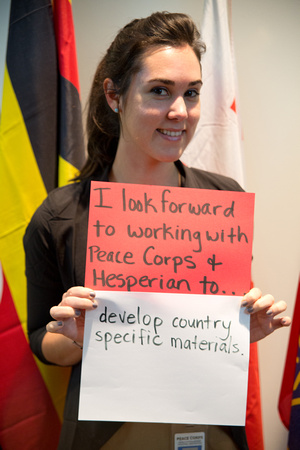 I look forward
to working with
Peace Corps &
Hesperian to...
develop country
specific materials.
PEACE CORPS